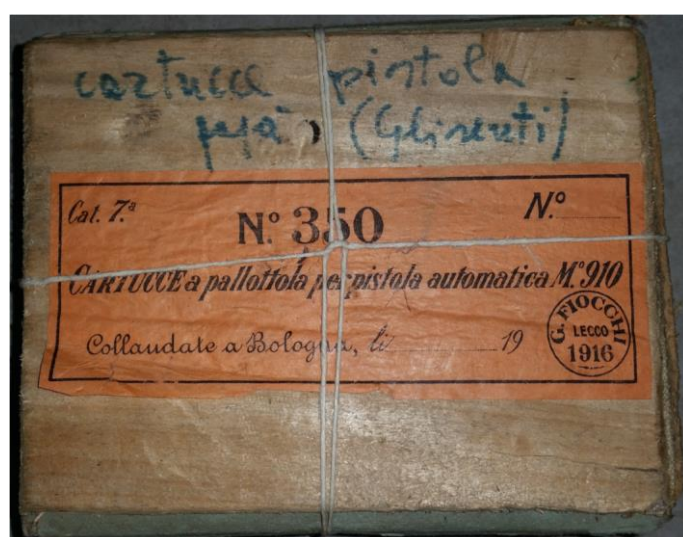 cartucce pistola
(Glisenti)
Cat. 7.ª
N.º 350
N.º
CARTUCCE a pallottola per pistola automatica M.º 910
Collaudate a Bologna, li 19
G. FIOCCHI
LECCO
1916